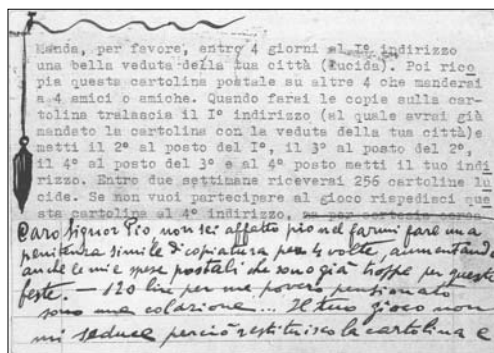 Manda, per favore, entro 4 giorni al I° indirizzo
una bella veduta della tua città (Lucida). Poi rico
pia questa cartolina postale su altre 4 che manderai
a 4 amici o amiche. Quando farai le copie sulla car-
tolina tralascia il I° indirizzo (al quale avrai già
mandato la cartolina con la veduta della tua città)e
metti il 2° al posto del I°, il 3° al posto del 2°,
il 4° al posto del 3° e al 4° posto metti il tuo indi
rizzo. Entro due settimane riceverai 256 cartoline lu
cide. Se non vuoi partecipare al gioco rispedisci que
sta cartolina al 4° indirizzo, ma per cortesia senza
Caro Signor Pio non sei affatto pio nel farmi fare una
penitenza simile di copiatura per 4 volte, aumentando
anche le mie spese postali che sono già troppe per queste
feste. — 120 lire per me povero pensionato
sono una colazione... Il tuo gioco non
mi seduce perciò restituisco la cartolina e